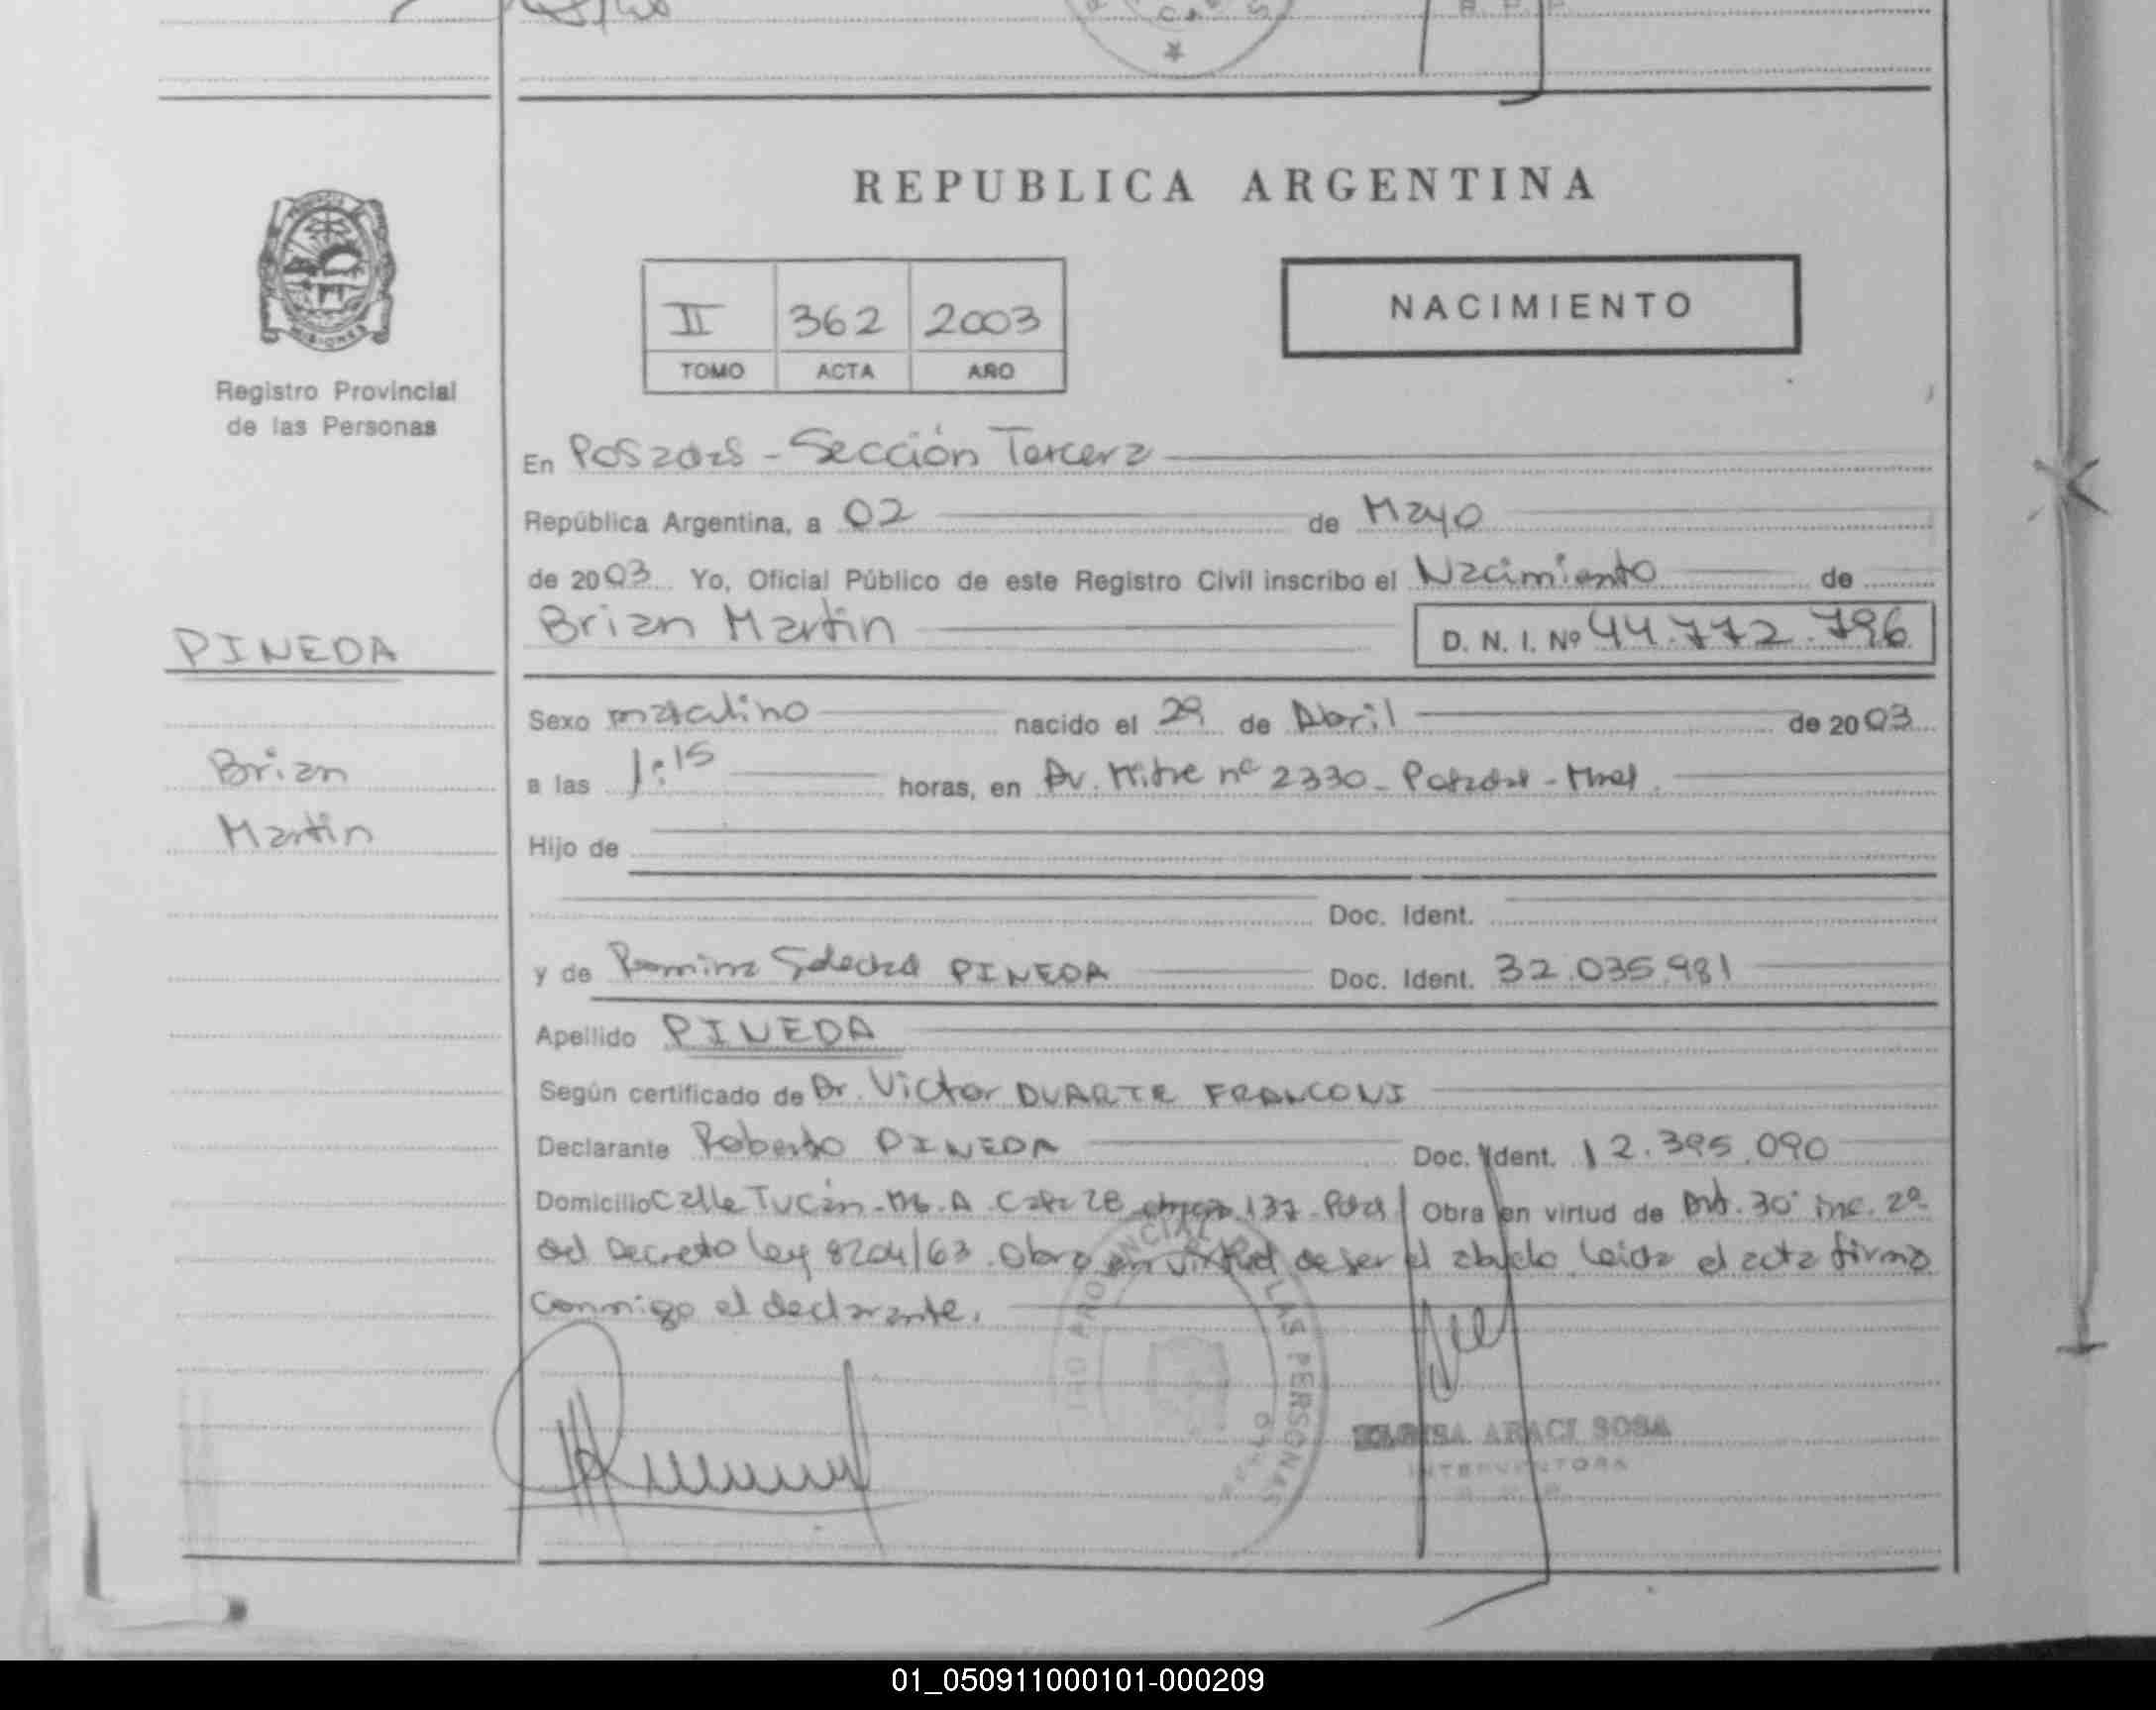 REPUBLICA ARGENTINA
II 362 2003
TOMO ACTA AÑO
NACIMIENTO
Registro Provincial
de las Personas
En Posadas - Sección Tercera
República Argentina, a 02 de Mayo
de 2003 Yo, Oficial Público de este Registro Civil inscribo el Nacimiento de
Brian Martin D. N. I. Nº 44.772.796
PINEDA
Brian
Martin
Sexo masculino nacido el 29 de Abril de 2003
a las 1:15 horas, en Av. Mitre nº 2330 - Posadas - Mnes.
Hijo de
Doc. Ident.
y de Romina Soledad PINEDA Doc. Ident. 32.035.981
Apellido PINEDA
Según certificado de Dr. Victor DUARTE FRANCONI
Declarante Roberto PINEDA Doc. Ident. 12.395.090
Domicilio Calle Tucán - A Casa 28 137 - Obra en virtud de Art. 30 inc. 2º
del Decreto Ley 8204/63. Obra en virtud de ser el abuelo. Leida el acta firma
conmigo el declarante.
PROVINCIAL DE LAS PERSONAS
ARACI SOSA
INTERVENTORA
01_050911000101-000209